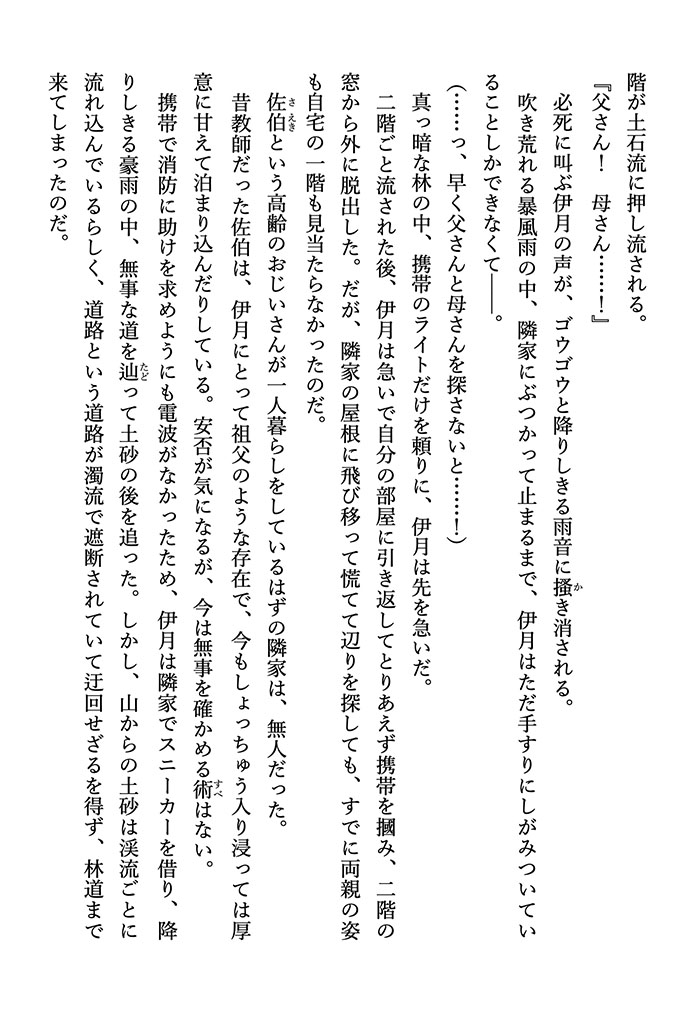 階が土石流に押し流される。
『父さん！　母さん……！』
　必死に叫ぶ伊月の声が、ゴウゴウと降りしきる雨音に掻き消される。
　吹き荒れる暴風雨の中、隣家にぶつかって止まるまで、伊月はただ手すりにしがみついてい
ることしかできなくて――。
（……っ、早く父さんと母さんを探さないと……！）
　真っ暗な林の中、携帯のライトだけを頼りに、伊月は先を急いだ。
　二階ごと流された後、伊月は急いで自分の部屋に引き返してとりあえず携帯を摑み、二階の
窓から外に脱出した。だが、隣家の屋根に飛び移って慌てて辺りを探しても、すでに両親の姿
も自宅の一階も見当たらなかったのだ。
　佐伯という高齢のおじいさんが一人暮らしをしているはずの隣家は、無人だった。
　昔教師だった佐伯は、伊月にとって祖父のような存在で、今もしょっちゅう入り浸っては厚
意に甘えて泊まり込んだりしている。安否が気になるが、今は無事を確かめる術はない。
　携帯で消防に助けを求めようにも電波がなかったため、伊月は隣家でスニーカーを借り、降
りしきる豪雨の中、無事な道を辿って土砂の後を追った。しかし、山からの土砂は渓流ごとに
流れ込んでいるらしく、道路という道路が濁流で遮断されていて迂回せざるを得ず、林道まで
来てしまったのだ。